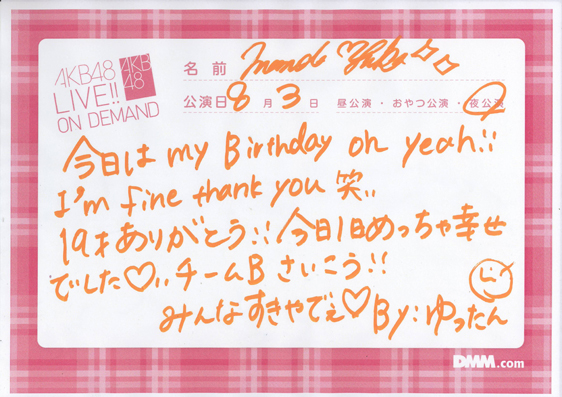 AKB48
LIVE!!
ON DEMAND
AKB
48
名前
公演日 8月 3日 昼公演・おやつ公演・夜公演
今日は my Birthday oh yeah!!
I'm fine thank you 笑!!
19才ありがとう!! 今日1日めっちゃ幸せ
でした♡!! チームBさいこう!!
みんなすきやでぇ♡ By:ゆったん
DMM.com